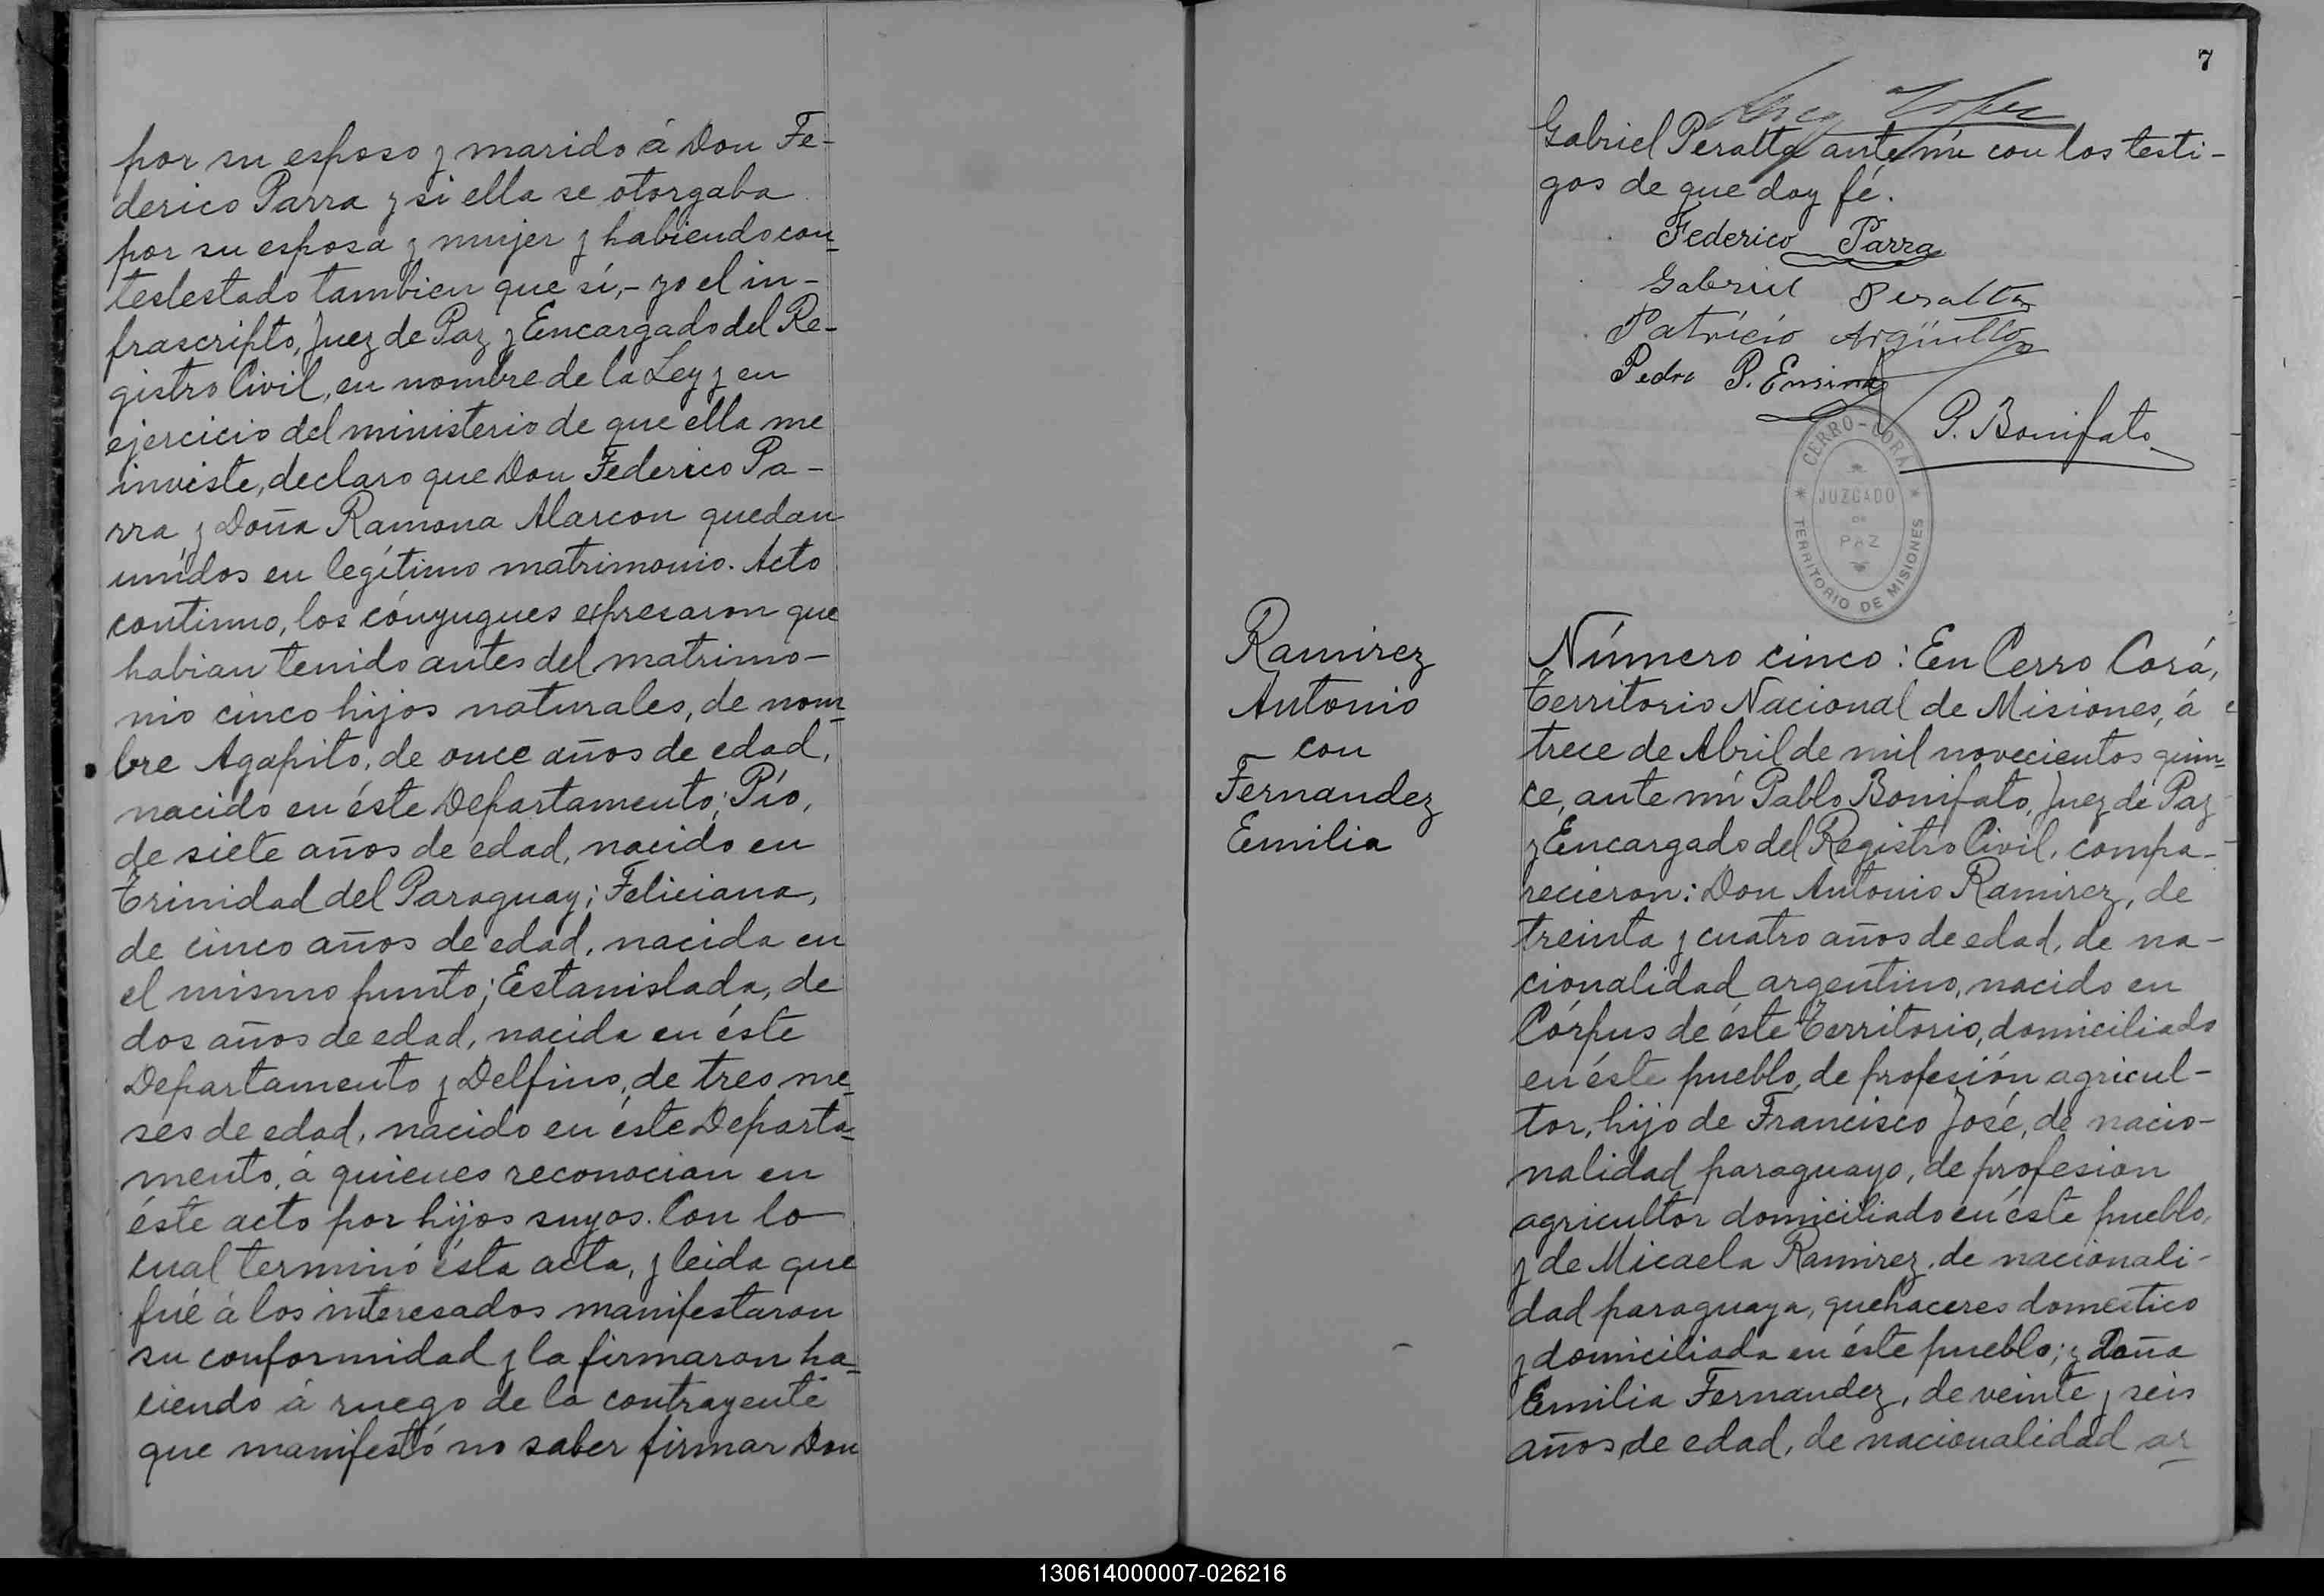 por su esposo y marido á Don Fe-
derico Parra y si ella se otorgaba
por su esposa y mujer y habiendo con-
testestado tambien que sí,- yo el in-
frascripto, Juez de Paz y Encargado del Re-
gistro Civil, en nombre de la Ley y en
ejercicio del ministerio de que ella me
inviste, declaro que Don Federico Pa-
rra y Doña Ramona Alarcon quedan
unidos en legítimo matrimonio. Acto
continuo, los cónyugues expresaron que
habian tenido antes del matrimo-
nio cinco hijos naturales, de nom-
bre Agapito, de once años de edad,
nacido en éste Departamento; Pío,
de siete años de edad, nacido en
Trinidad del Paraguay; Feliciana,
de cinco años de edad, nacida en
el mismo punto; Estanislada, de
dos años de edad, nacida en éste
Departamento y Delfino, de tres me-
ses de edad, nacido en éste Departa-
mento, á quienes reconocian en
éste acto por hijos suyos. Con lo
cual terminó ésta acta, y leida que
fué á los interesados manifestaron
su conformidad y la firmaron ha-
ciendo á ruego de la contrayente
que manifestó no saber firmar Don
7
Gabriel Peralta ante mí con los testi-
gos de que doy fé.
Federico Parra
Gabriel Peralta
Patricio Argüello
Pedro P. Encina
P. Bonifato
CERRO-CORÁ
JUZGADO
DE
PAZ
TERRITORIO DE MISIONES
Ramirez
Antonio
con
Fernandez
Emilia
Número cinco: En Cerro Corá,
Territorio Nacional de Misiones, á
trece de Abril de mil novecientos quin-
ce, ante mí Pablo Bonifato, Juez de Paz
y Encargado del Registro Civil, compa-
recieron: Don Antonio Ramirez, de
treinta y cuatro años de edad, de na-
cionalidad argentino, nacido en
Córpus de éste Territorio, domiciliado
en éste pueblo, de profesión agricul-
tor, hijo de Francisco José, de nacio-
nalidad paraguayo, de profesion
agricultor domiciliado en éste pueblo,
y de Micaela Ramirez, de nacionali-
dad paraguaya, quehaceres domestico
y domiciliada en éste pueblo; y Doña
Emilia Fernandez, de veinte y seis
años de edad, de nacionalidad ar-
130614000007-026216